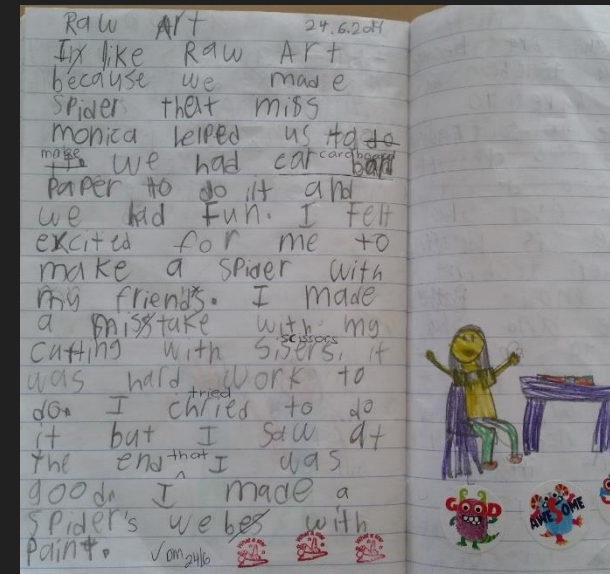 Raw Art 24.6.2014
I like Raw Art
because we made
spider that miss
monica helped us to do
make we had car cardboard
paper to do it and
we had fun. I felt
excited for me to
make a spider with
my friends. I made
a misstake with my
scissors
cutting with sisers, it
was hard work to
tried
do. I chried to do
it but I saw at
the end that I was
good. I made a
spider's webes with
paint. 24/6
GOOD
AWESOME